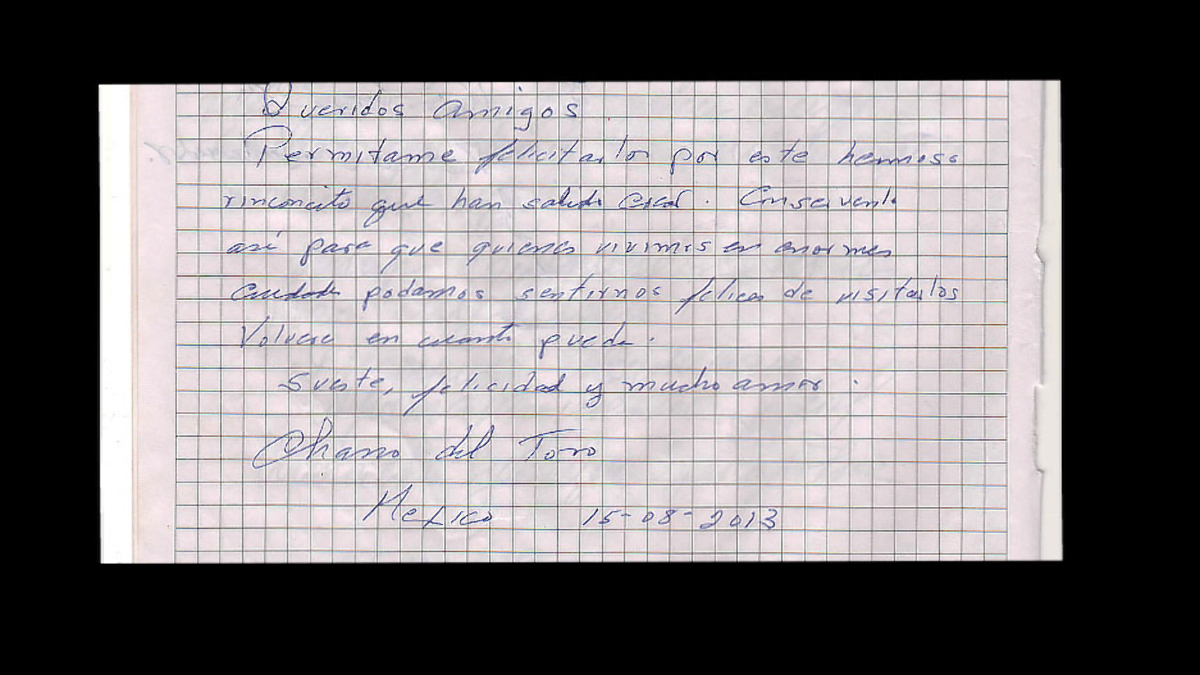 Queridos amigos
Permitame felicitarlos por este hermoso
rinconcito que han sabido crear. Conservenlo
así para que quienes vivimos en enormes
ciudades podamos sentirnos felices de visitarlos
Volvere en cuanto pueda.
Suerte, felicidad y mucho amor.
Chano del Toro
Mexico 15-08-2013